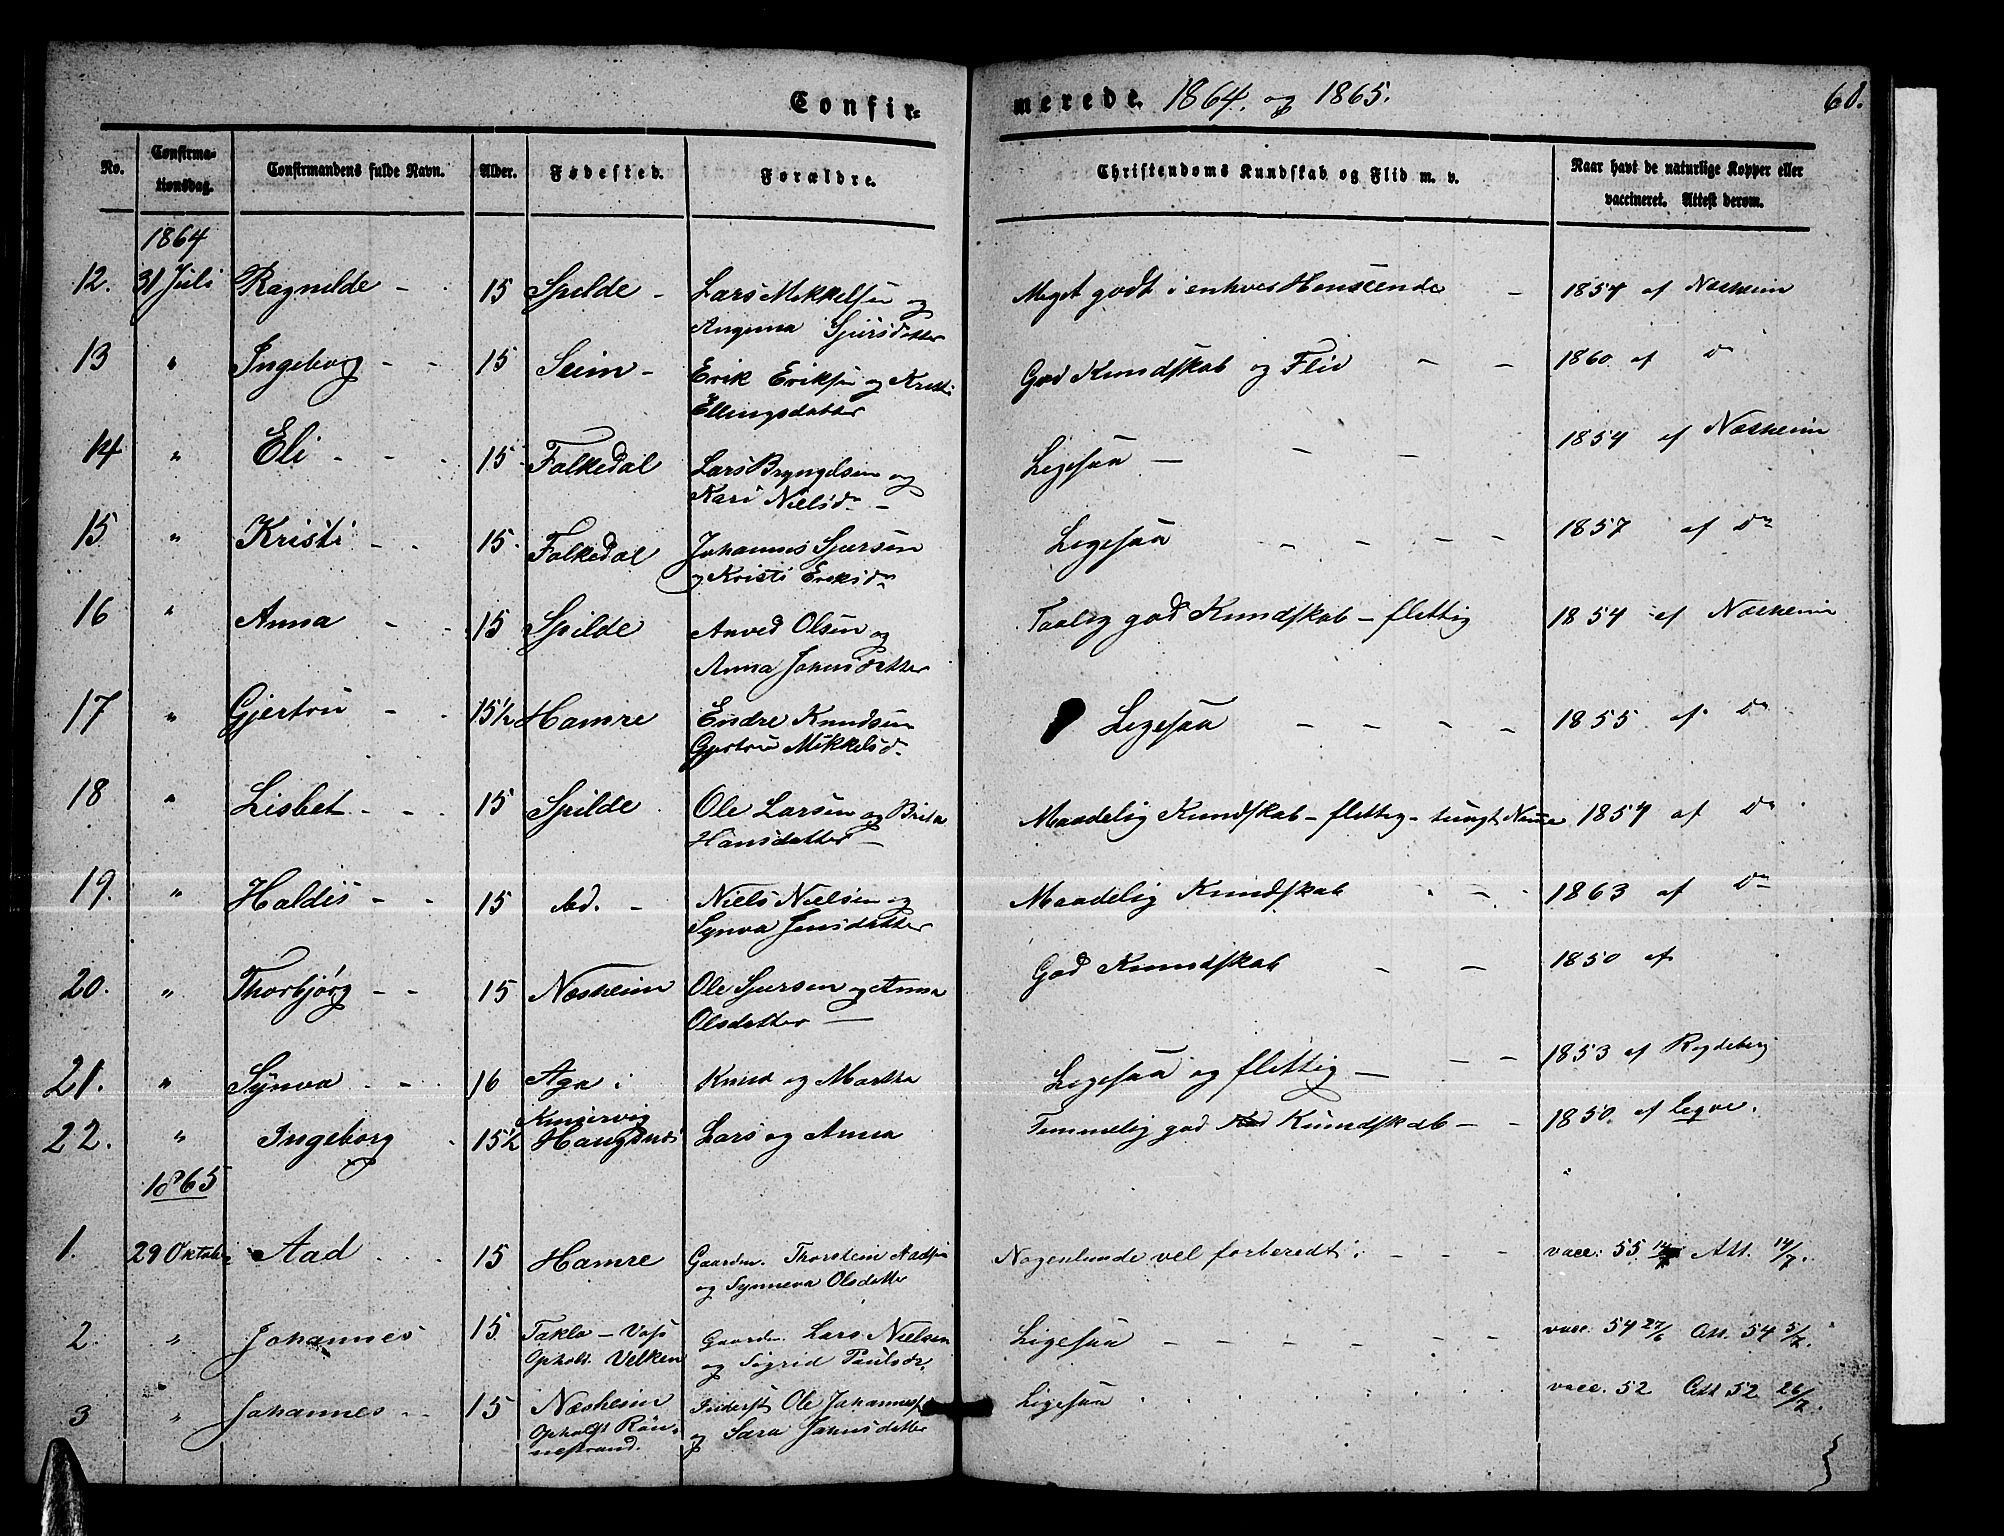 Confir-
merede 1864. og 1865.
68.
No.
Confirma-
tionsdag.
Confirmandens fulde Navn.
Alder.
Fødested.
Forældre.
Christendoms Kundskab og Flid m. v.
Naar havt de naturlige Kopper eller
vaccineret. Attest derom.
1864
12. 31 Juli Ragnilde - 15 Spilde - Lars Mikkelsen og
Sjursdatter
Meget godt i enhver Henseende - 1854 af Næsheim
13 " Ingeborg - - 15 Seim - Erik Eriksen og Kristi
Ellingsdatter
God Kundskab og Flid - - 1860 af Do
14 " Eli - - - 15 Folkedal Lars Bryngelsen og
Kari Nielsdr -
Ligesaa - - - 1854 af Næsheim
15 " Kristi - - 15 Folkedal Johannes Sjursen
og Kristi Eriksdr
Ligesaa - - - - 1857 af Do
16 " Anna - - 15 Spilde Anved Olsen og
Anna Johnsdatter
Taalig god Kundskab - flittig 1854 af Næsheim
17 " Gjertru - - 15½ Hamre Endre Knudsen
Gjertru Mikkelsdr
Ligesaa - - - - 1855 af Do
18 " Lisbet - - 15 Spilde Ole Larsen og Brita
Hansdatter -
Maadelig Kundskab - flittig - tungt Nemme 1854 af Do
19. " Haldis - - 15 Niels Nielsen og
Synva Jensdatter
Maadelig Kundskab - - 1863 af Do
20. " Thorbjørg - - 15 Næsheim Ole Sjursen og Anna
Olsdatter -
God Kundskab - - 1850 af
21. " Synva - - 16 Aga i
Kinservig
Knud og Martha
Ligesaa og flittig - - - 1853 af Rogdeberg
22. " Ingeborg 15½ Haugsnæs Lars og Anna
Temmelig god Kundskab - - 1850 af
1865
1. 29 Oktober Aad 15 Hamre Gaardm. Thorstein Aadsen
og Synneva Olsdatter
Nogenlunde vel forberedt. - - - vacc. 55 Att. 14/7.
2. " Johannes 15 Takla - Voss
Opholdt. Velken
Gaardm. Lars Nielsen
og Sigrid Paulsdr.
Ligesaa - - - - - vacc. 54 27/6 Att. 54 5/7.
3 " Johannes - - 15 Næsheim
Opholdt Røn-
nestrand.
Inderst Ole Johannes
og Sara Johnsdatter
Ligesaa vacc. 52 Att 52 26/7.